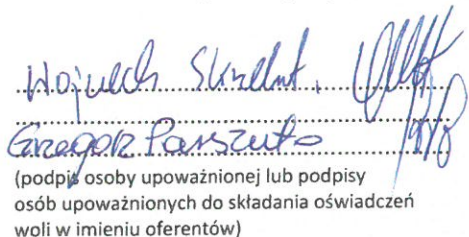 Wojciech
Grzegorz Parszuto
(podpis osoby upoważnionej lub podpisy
osób upoważnionych do składania oświadczeń
woli w imieniu oferentów)